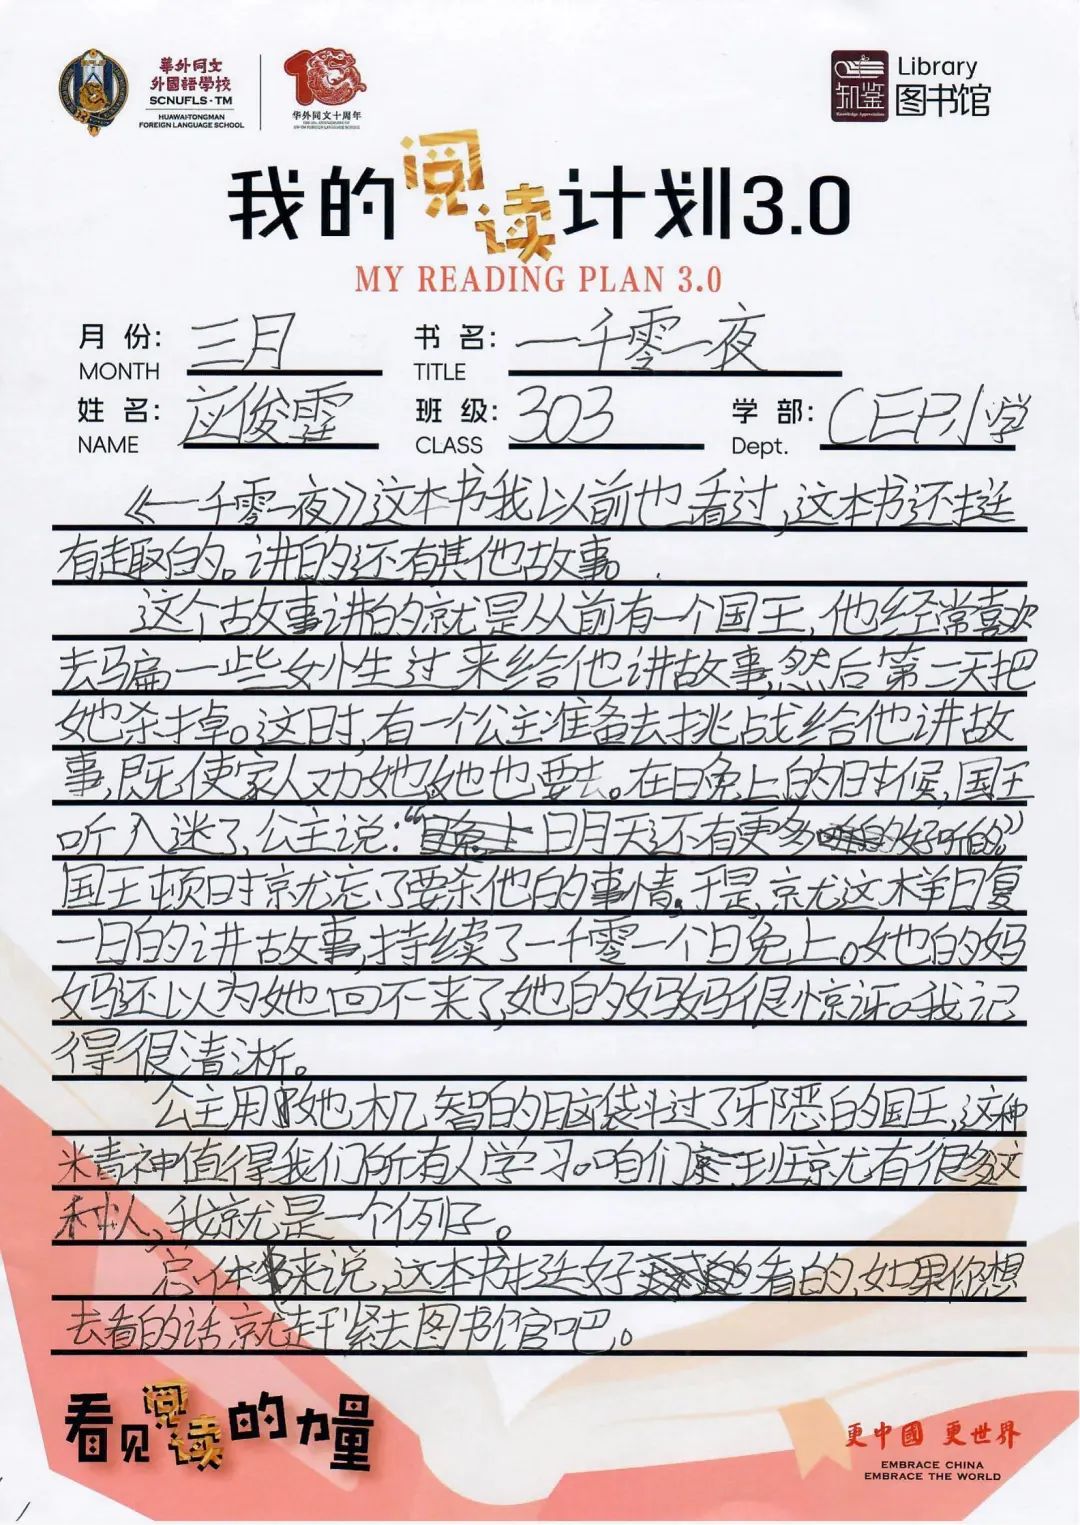 華外同文
外國語學校
SCNUFLS·TM
HUAWAI-TONGMAN
FOREIGN LANGUAGE SCHOOL
华外同文十周年
知鉴
Library
图书馆
我的阅读计划3.0
MY READING PLAN 3.0
月份: 三月 书名: 一千零一夜
MONTH TITLE
姓名: 应俊霆 班级: 303 学部: CEP小学
NAME CLASS Dept.
《一千零一夜》这本书我以前也看过,这本书还挺
有趣的。讲的还有其他故事。
这个故事讲的就是从前有一个国王,他经常喜欢
去骗一些女性过来给他讲故事,然后第二天把
她杀掉。这时,有一个公主准备去挑战给他讲故
事,既使家人劝她,她也要去。在晚上的时候,国王
听入迷了,公主说:“明天还有更多好听的”
国王顿时就忘了要杀他的事情。于是,就这样日复
一日的讲故事,持续了一千零一个晚上。她的妈
妈还以为她回不来了,她的妈妈很惊讶。我记
得很清淅。
公主用她机智的脑袋斗过了邪恶的国王,这种
精神值得我们所有人学习。咱们班就有很多这
种人,我就是一个例子。
总体来说,这本书挺好看的,如果你想
去看的话就赶紧去图书馆吧。
看见阅读的力量
更中國 更世界
EMBRACE CHINA
EMBRACE THE WORLD